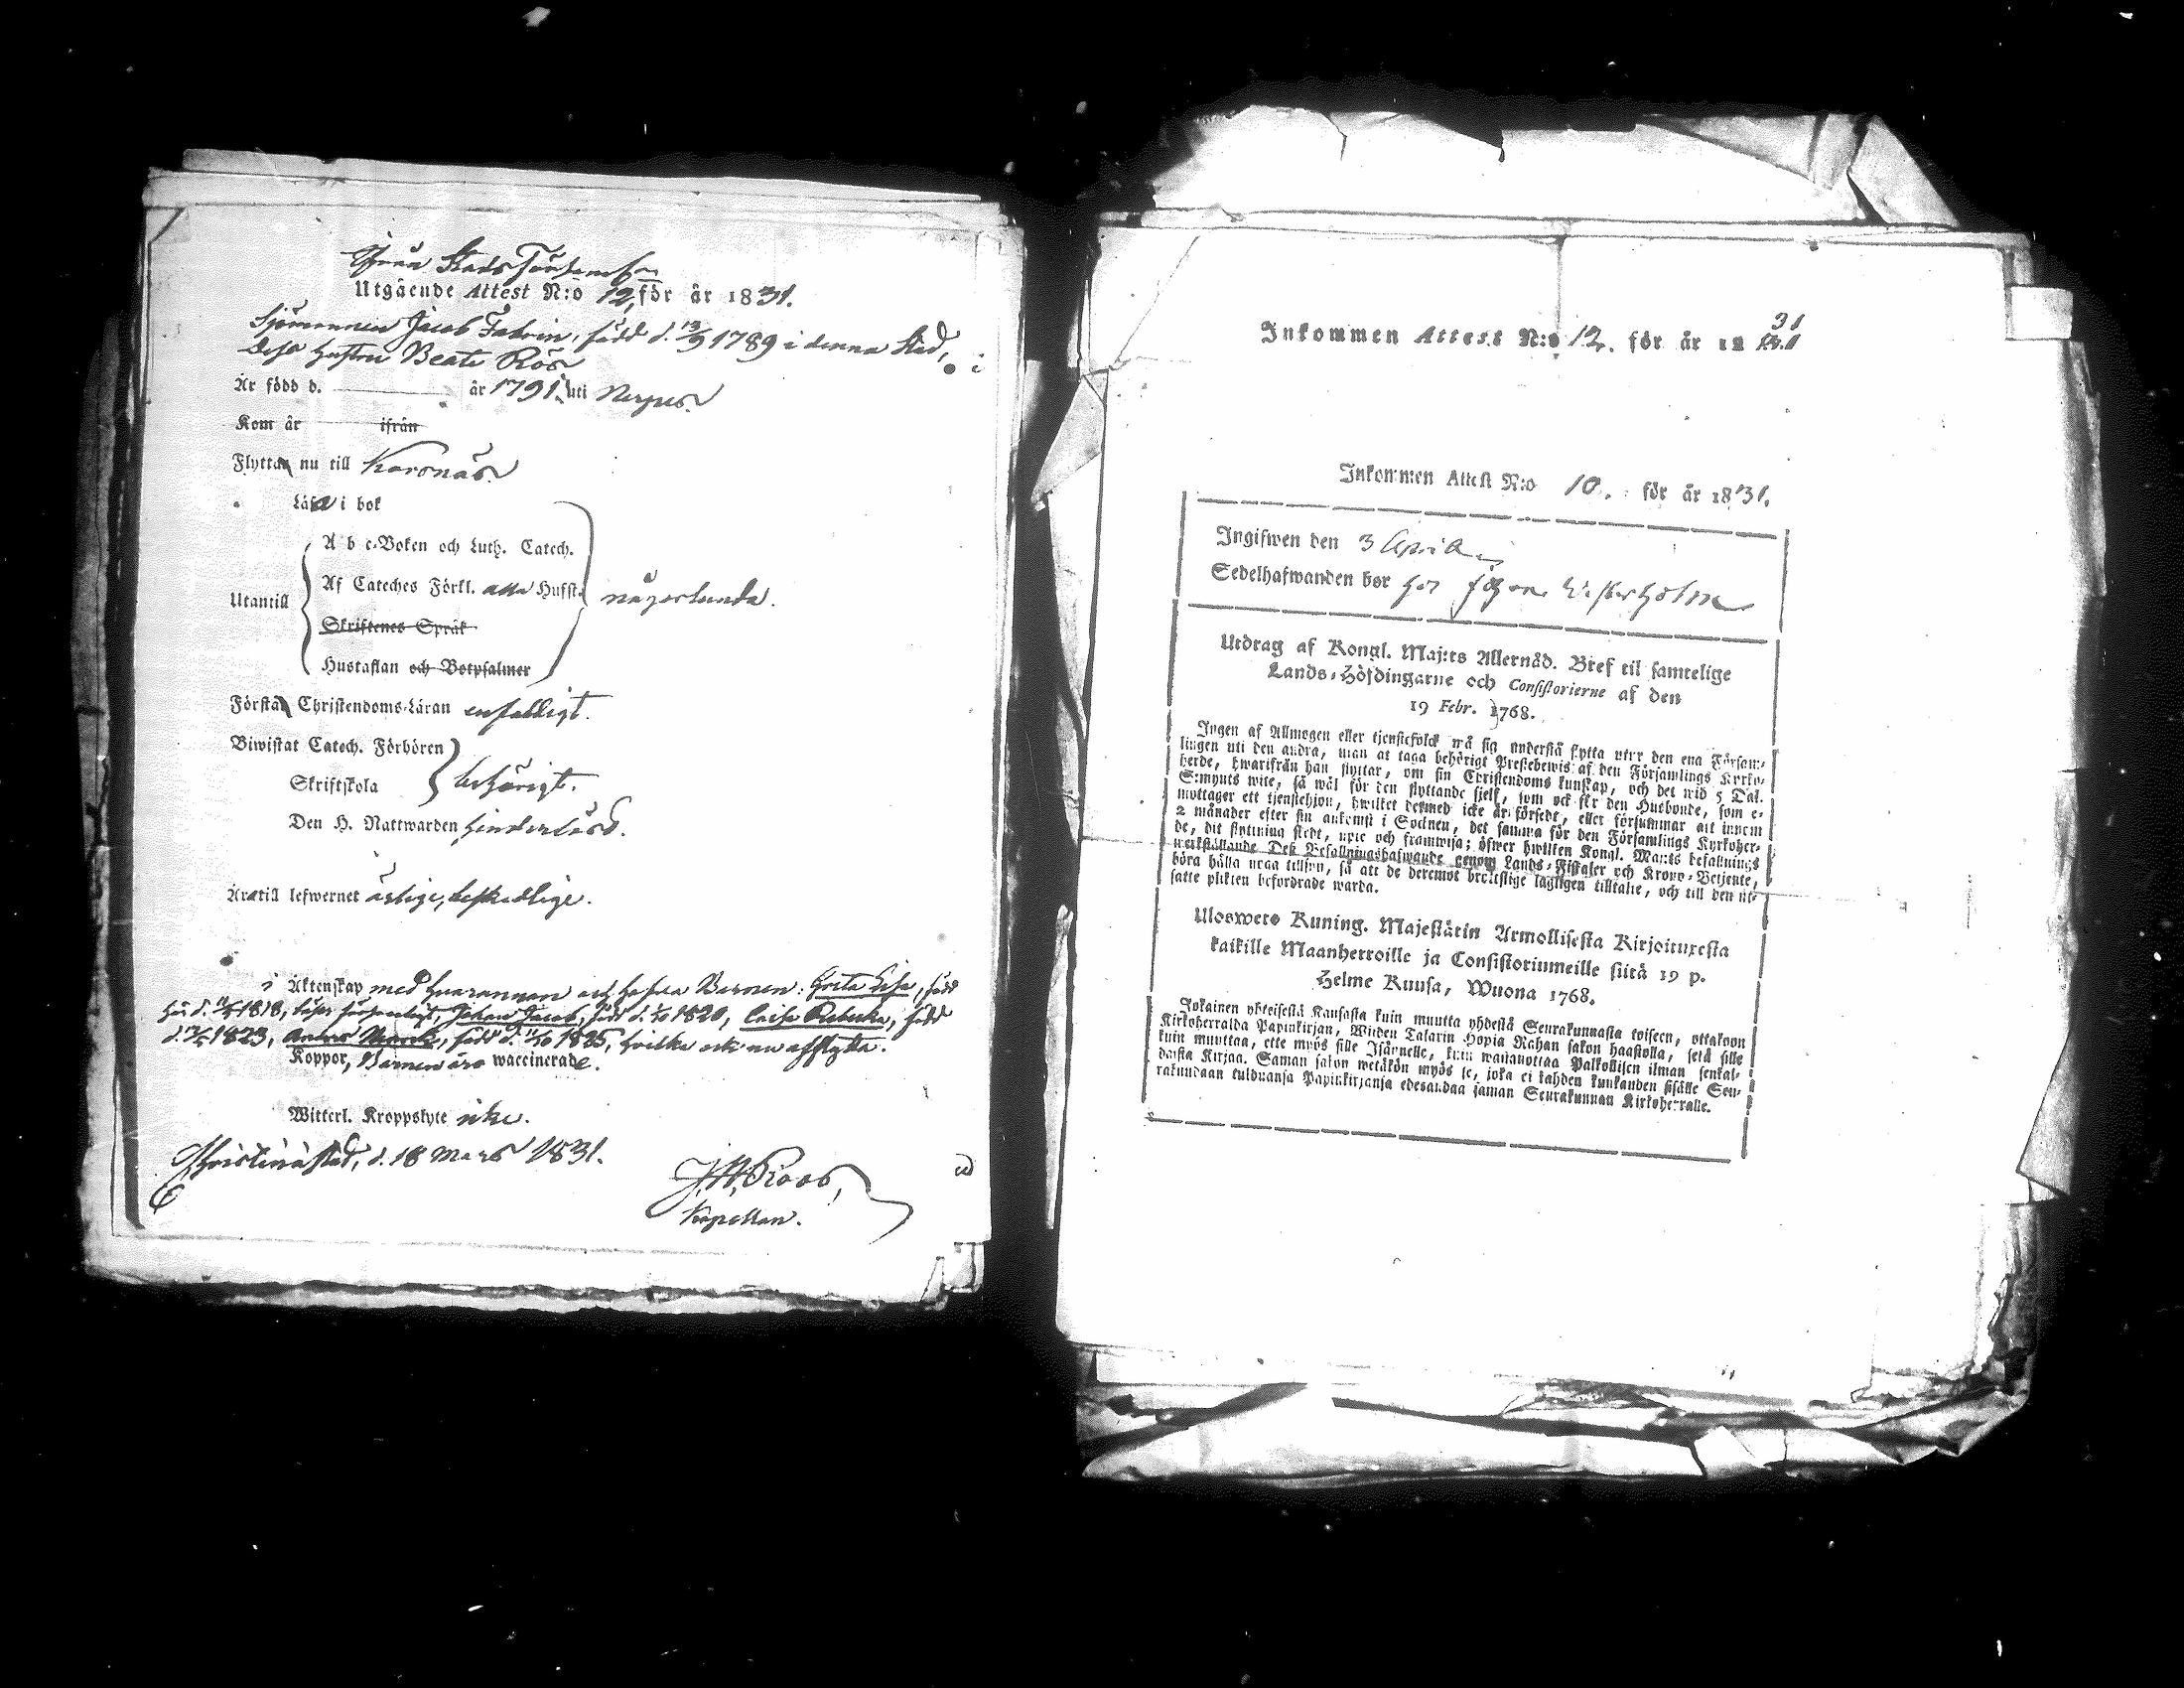 Ifrån Stads Församl:n
Utgående Attest N:o 12, för år 1831.
Sjömannen Jacob Fabrin, född d. 13/9 1789 i denna stad,
dess hustru Beata Rös
Är född d. år 1791 uti Nerpes.
Kom år ifrån
Flytta nu till Korsnäs.
Läsa i bok
A b c-Boken och Luth. Catech.
Af Cateches Förkl. alla Hufst.
Utantill någorlunda.
Skriftenes Språk
Hustaflan och Botpsalmer
Förstå Christendoms-Läran enfaldigt.
Biwistat Catech. Förhören
Skriftskola behörigt.
Den H. Nattwarden hinderlöst.
Äro till lefwernet ärlige, beskedlige.
i Äktenskap med hvarannan och hafva Barnen: Greta Lisa, född
här d. 1818, läser försvarligt, Johan Jacob, född d. 1820, Caisa Rebecka, född
d. 1823, född d. 1825, hvilka ock nu afflytta.
Koppor, Barnen äro waccinerade.
Witterl. Kroppslyte icke.
Christinæstad, d. 18 Mars 1831.
J. W. Roos,
Kapellan.
Inkommen Attest N:o 12. för år 18 31
Inkommen Attest N:o 10. för år 1831.
Ingifwen den 3 April
Sedelhafwanden bor hos
Utdrag af Kongl. Maj:ts Allernåd. Bref til samtelige
Lands-Höfdingarne och Consistorierne af den
19 Febr. 1768.
Ingen af Allmogen eller tjenstefolck må sig understå flytta utur den ena Försam-
lingen uti den andra, utan at taga behörigt Prestebewis af den Församlings Kyrko-
herde, hwarifrån han flyttar, om sin Christendoms kunskap, och det wid 5 Dal.
S:mynts wite, så wäl för den flyttande sjelf, som ock för den Husbonde, som e-
mottager ett tjenstehjon, hwilket dermed icke är försedt, eller försummar att innom
2 månader efter sin ankomst i Socknen, det samma för den Församlings Kyrkoher-
de, dit flyttning skedt, upte och framwisa; öfwer hwilket Kongl. Maj:ts befallnings
werkställande Dess Befallningshafwande genom Lands-Fiskaler och Krono-Betjente,
böra hålla noga tillsyn, så att de deremot bröttslige lagligen tilltalte, och till den ut-
satte plikten befordrade warda.
Uloswero Kuning. Majestätin Armollisesta Kirjoituxesta
kaikille Maanherroille ja Consistoriumeille siitä 19 p.
Helme Kuusa, Wuona 1768.
Jokainen yhteisestä Kansasta kuin muutta yhdestä Seurakunnasta toiseen, ottakoon
Kirkoherralda Papinkirjan, Wiiden Talarin Hopia Rahan sakon haastolla, sekä sille
kuin muuttaa, ette myös sille Isännelle, kuin wastanottaa Palkollisen ilman senkal-
daista Kirjaa. Saman sakon wetäkön myös se, joka ei kahden kuukauden sisälle Seu-
rakundaan tulduansa Papinkirjansa edesandaa saman Seurakunnan Kirkoherralle.